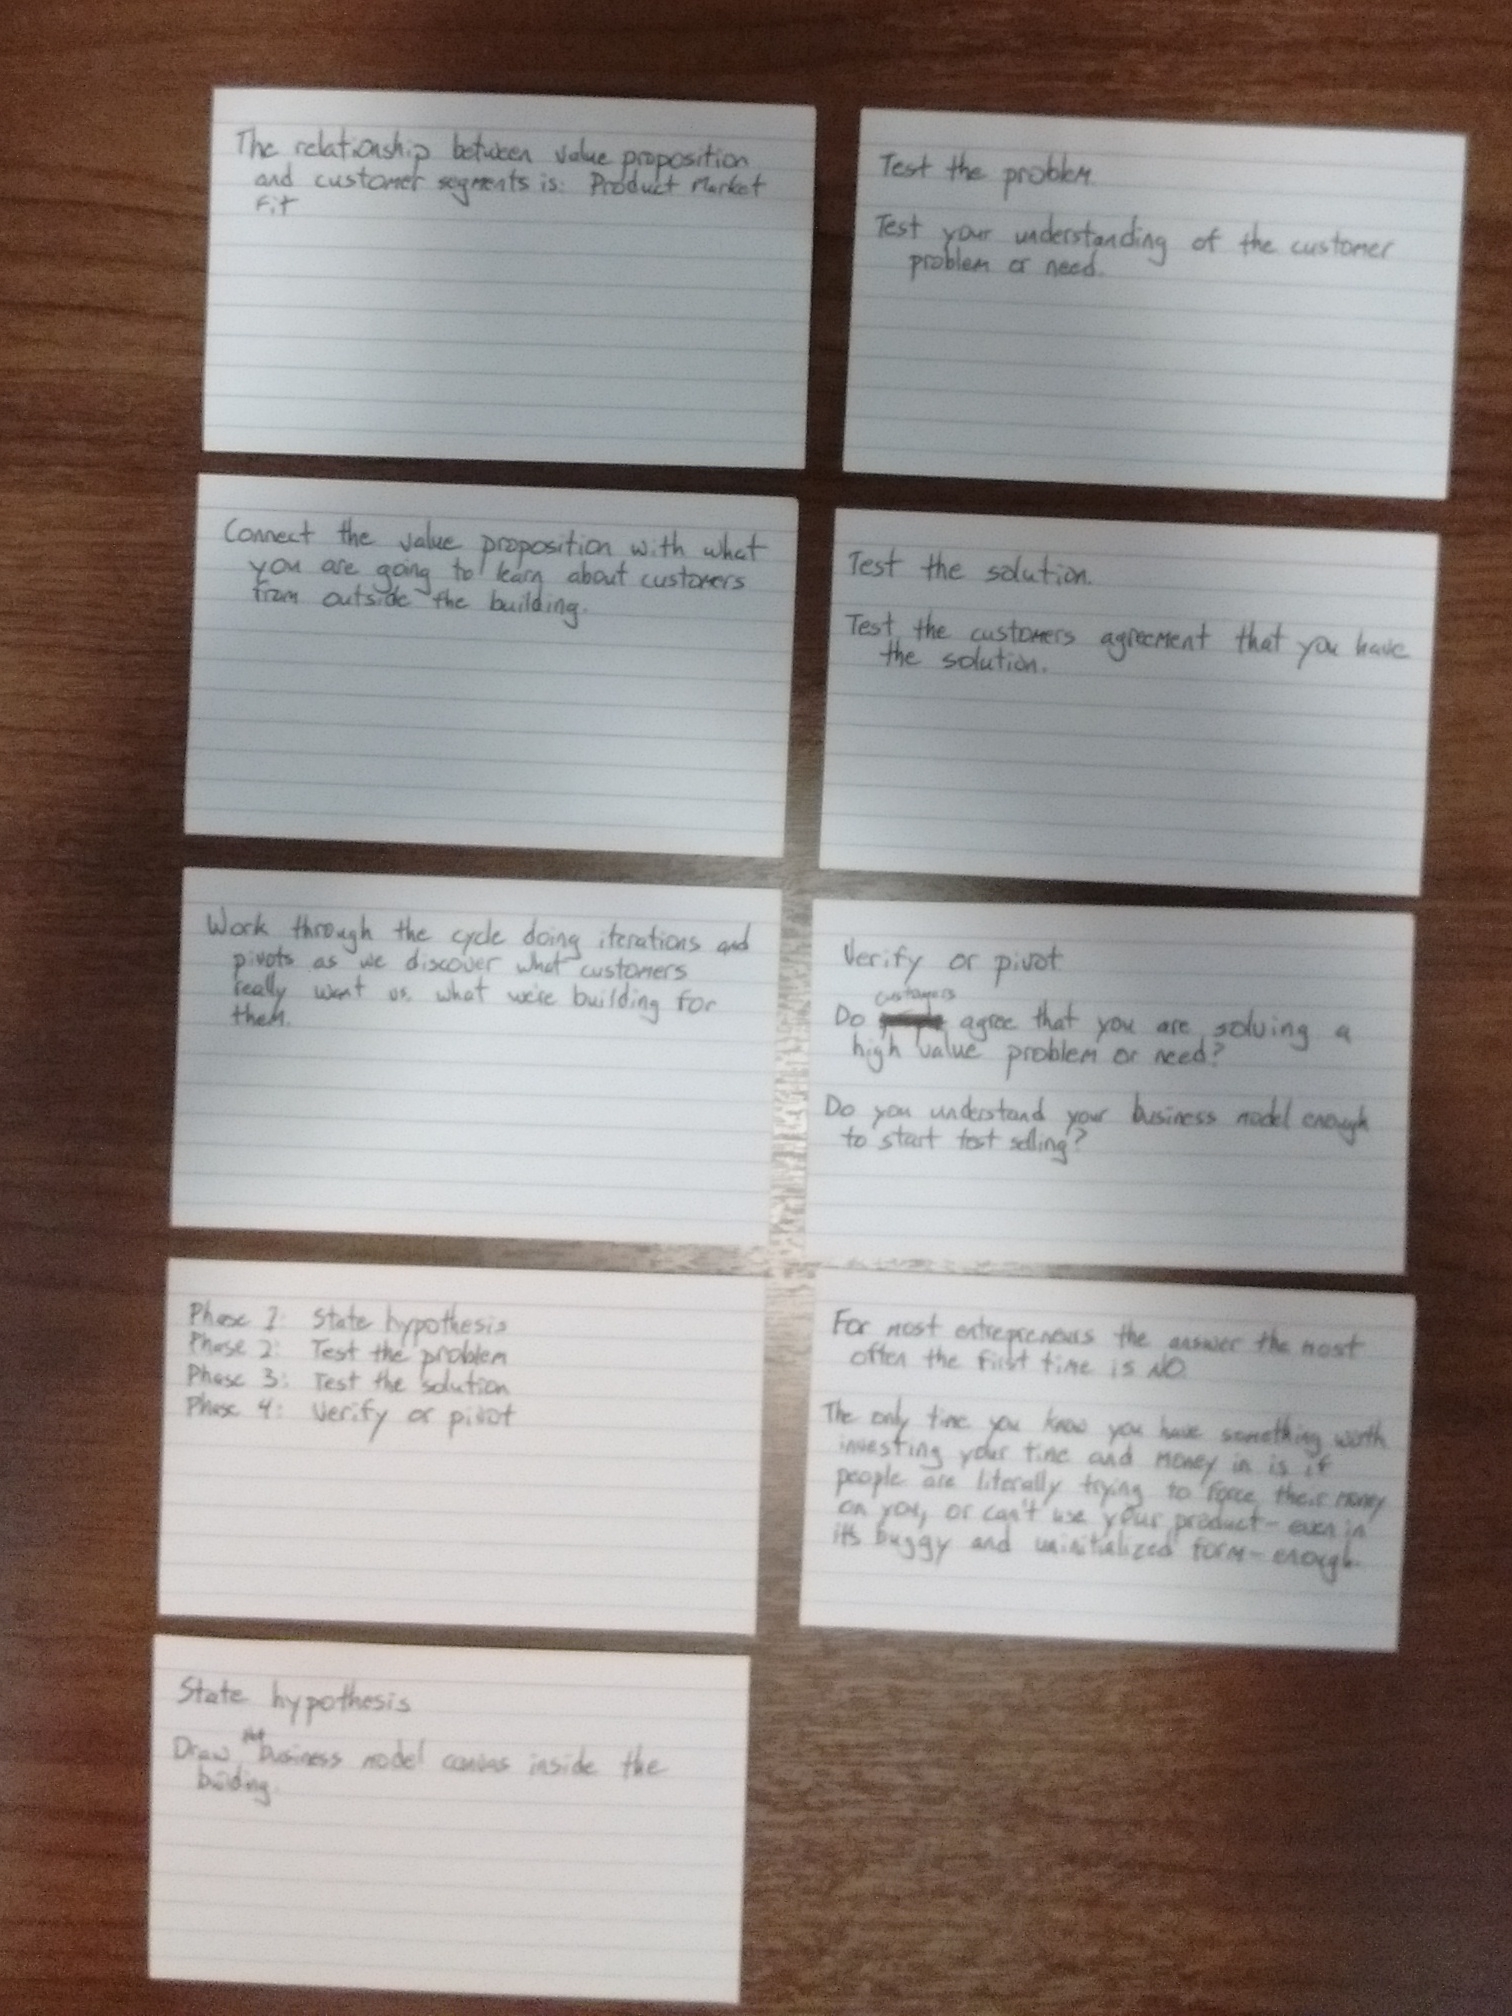 The relationship between value proposition
and customer segments is: Product Market
Fit
Connect the value proposition with what
you are going to learn about customers
from outside the building.
Work through the cycle doing iterations and
pivots as we discover what customers
really want vs. what we're building for
them.
Phase 1: State hypothesis
Phase 2: Test the problem
Phase 3: Test the solution
Phase 4: Verify or pivot
State hypothesis
Draw business model canvas inside the
building.
Test the problem
Test your understanding of the customer
problem or need.
Test the solution.
Test the customers agreement that you have
the solution.
Verify or pivot
customers
Do agree that you are solving a
high value problem or need?
Do you understand your business model enough
to start test selling?
For most entrepreneurs the answer the most
often the first time is NO.
The only time you know you have something worth
investing your time and money in is if
people are literally trying to force their money
on you, or can't use your product - even in
it's buggy and uninitialized form - enough.